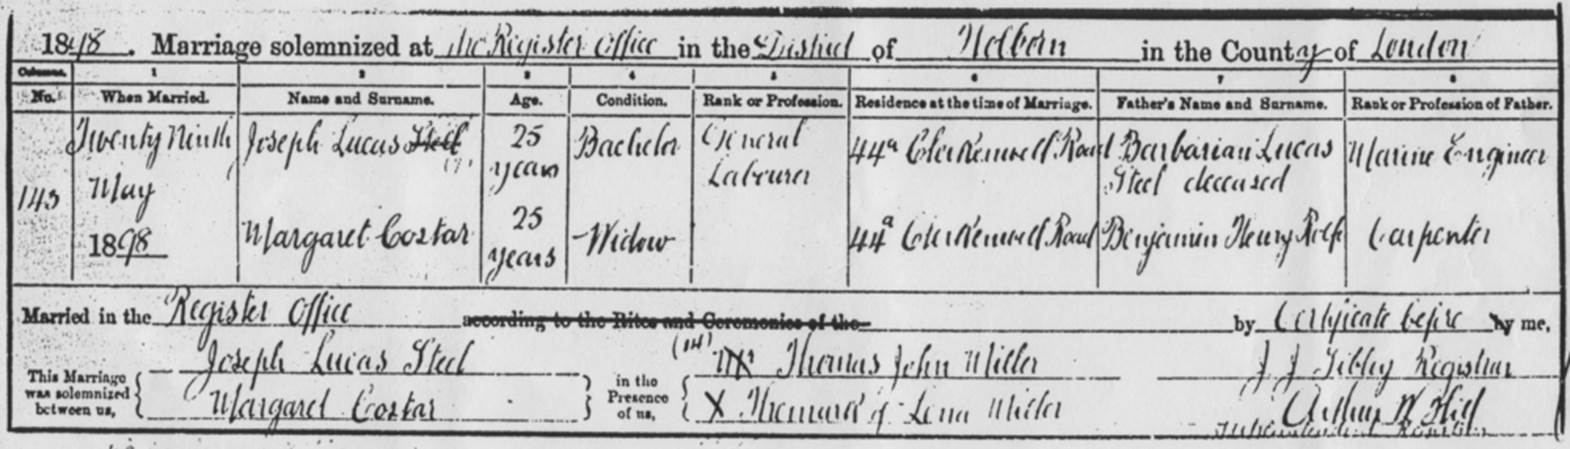 1898. Marriage solemnized at the Register Office in the District of Holborn in the County of London
Columns. 1 2 3 4 5 6 7 8
No. When Married. Name and Surname. Age. Condition. Rank or Profession. Residence at the time of Marriage. Father's Name and Surname. Rank or Profession of Father.
143 Twenty Ninth May 1898 Joseph Lucas Steel 25 years Bachelor General Labourer 44a Clerkenwell Road Barbarian Lucas Steel deceased Marine Engineer
Margaret Costar 25 years Widow 44a Clerkenwell Road Benjamin Henry Rolfe Carpenter
Married in the Register Office according to the Rites and Ceremonies of the by Certificate before by me,
This Marriage was solemnized between us, Joseph Lucas Steel in the Presence of us, Thomas John Miller J J Tibby Registrar
Margaret Costar X The mark of Lena Miller Arthur W Hill
Superintendent Registrar